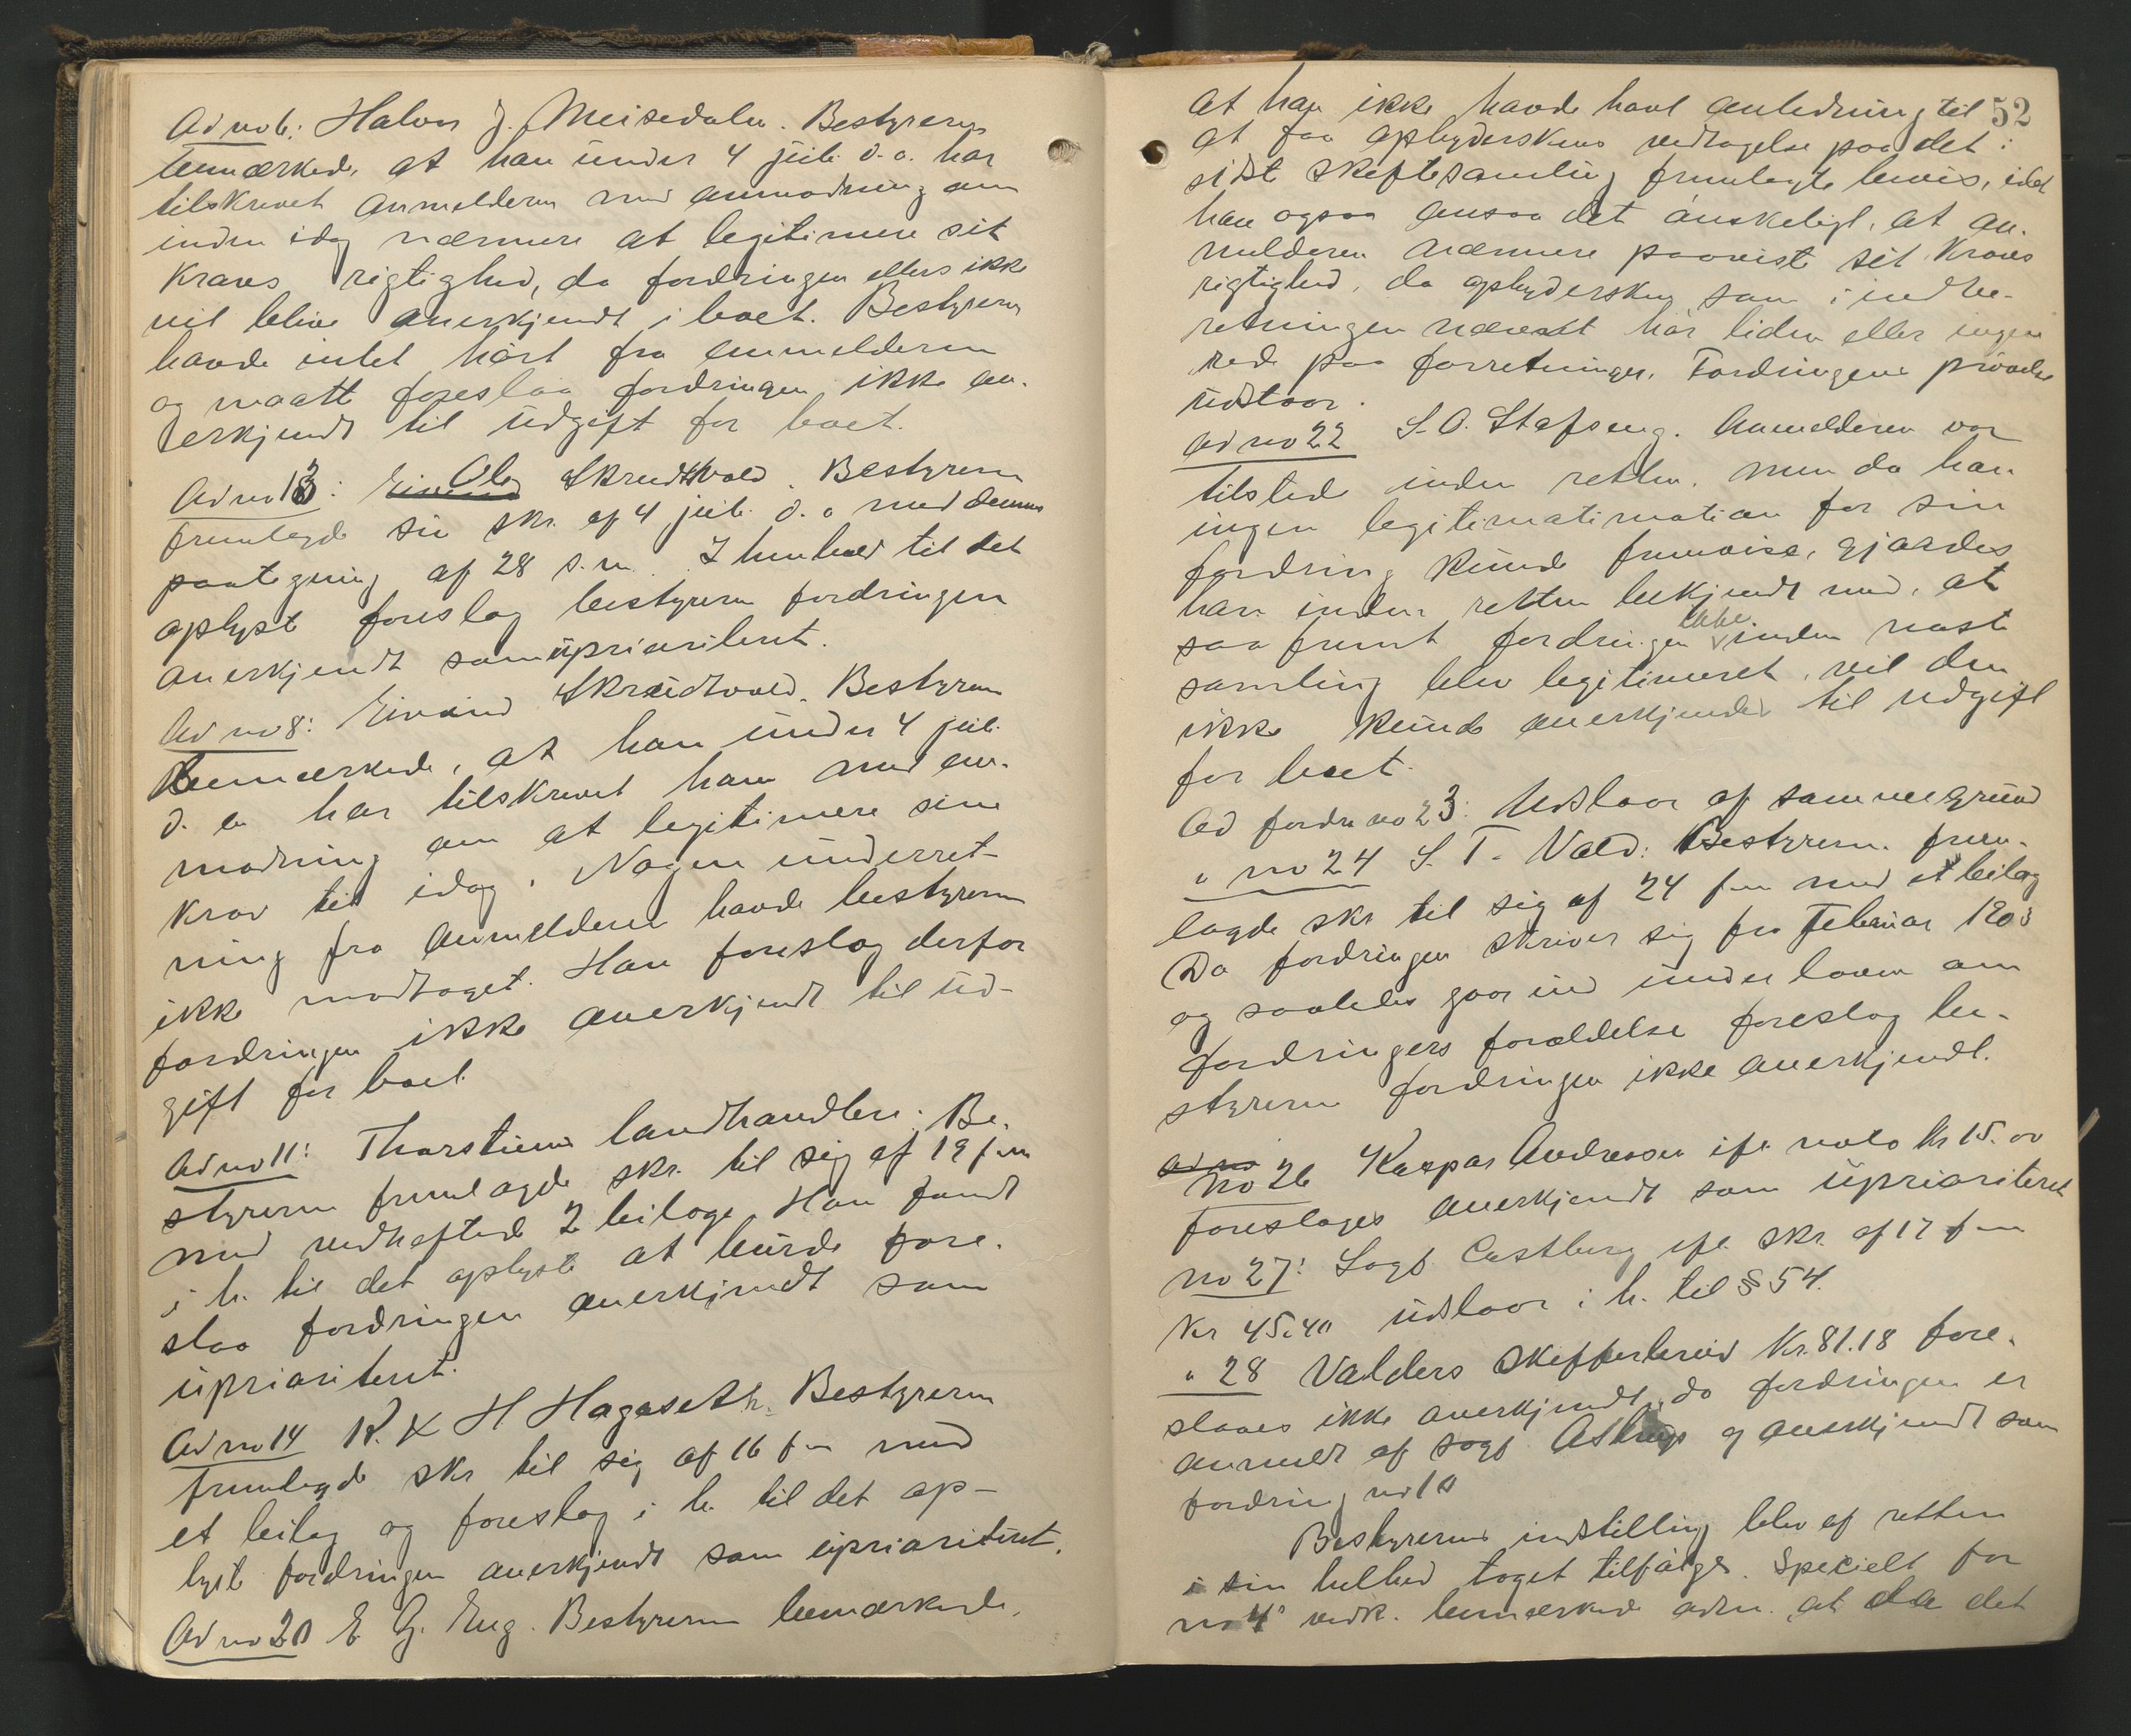 Ad no 6: Halvor J. Meisedalen. Bestyreren
bemærkede, at han under 4 juli d. a. har
tilskrevet anmelderen med anmodning om
inden idag nærmere at legitimere sit
kravs rigtighed, da fordringen ellers ikke
vil blive anerkjendt i boet. Bestyreren
havde intet hørt fra anmelderen
og maatte foreslaa fordringen ikke an-
erkjendt til udgift for boet.
Ad no 13: Eivind Ole Skrudtvold. Bestyreren
fremlagde sin skr. af 4 juli d. a med dennes
paategning af 28 s. m. I henhold til det
oplyste foreslog bestyreren fordringen
anerkjendt som uprioriteret.
Ad no 8: Eivind Skrudtvold. Bestyreren
bemærkede, at han under 4 juli
d. a. har tilskrevet ham med an-
modning om at legitimere sine
krav til idag. Nogen underret-
ning fra anmelderen havde bestyreren
ikke modtaget. Han foreslog derfor
fordringen ikke anerkjendt til ud-
gift for boet.
Ad no 11: Thorstiens landhandleri. Be-
styreren fremlagde skr. til sig af 19 f. m
med vedheftede 2 bilage. Han fandt
i h. til det oplyste at burde fore-
slaa fordringen anerkjendt som
uprioriteret.
Ad no 14 K. & H Hagaseth. Bestyreren
fremlagde skr til sig af 16 f m med
et bilag og foreslog i h. til det op-
lyste fordringen anerkjendt som uprioriteret.
Ad no 20 E. G. Eng. Bestyreren bemærkede,
52
at han ikke havde havt anledning til
at faa opbyderskens vedtagelse paa det i
sidste skiftesamling fremlagte bevis, idet
han ogsaa ansaa det ønskeligt, at an-
melderen nærmere paaviste sit kravs
rigtighed, da opbydersken som i indbe-
retningen nævnt har liden eller ingen
rede paa forretningen. Fordringens prøvelse
udstaar.
Ad no 22 S. O. Stafseng. Anmelderen var
tilstede inden retten, men da han
ingen legitimatimation for sin
fordring kunde fremvise, gjordes
han inden retten bekjendt med, at
saafremt fordringen ikke inden næste
samling blev legitimeret, vil den
ikke kunde anerkjendes til udgift
for boet.
Ad fordr no 23: Udstaar af samme grund
" no 24 S. T. Vold: Bestyreren frem-
lagde skr til sig af 24 f m med et bilag
Da fordringen skriver sig fra Februar 1903
og saaledes gaar ind under loven om
fordringers forældelse foreslog be-
styreren fordringen ikke anerkjendt.
ad no
No 26 Kaspar Andreasen ifl. nota Kr 15.00
foreslages anerkjendt som uprioriteret
No 27: Sagf. Castberg ifl. skr. af 17 f m
Kr 45.40 udstaar i h. til § 54.
" 28 Valders Skifferbrud Kr. 81.18 fore-
slaaes ikke anerkjendt, da fordringen er
anmeldt af sagf. Astrup og anerkjendt som
fordring no 10
Bestyrerens indstilling blev af retten
i sin helhed taget tilfølge. Specielt for
no 4 vedk. bemærkede adm. at da det